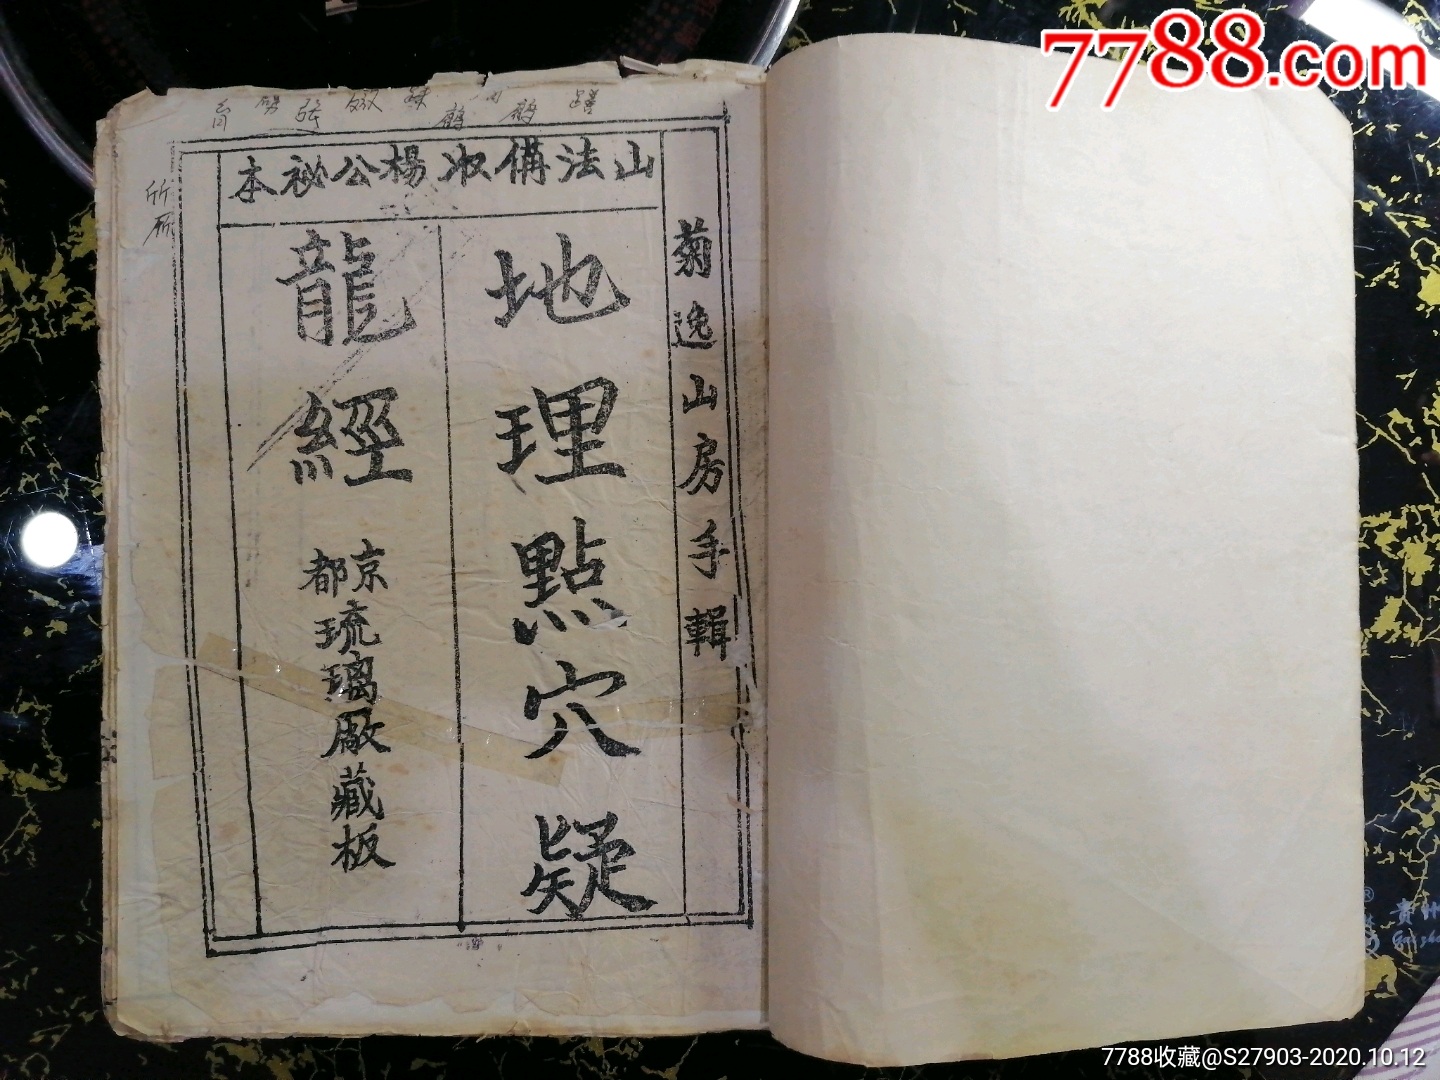 7788.com
山法備收楊公祕本
菊逸山房手輯
地理點穴疑
龍經
京都琉璃厰藏板
7788收藏@S27903-2020.10.12